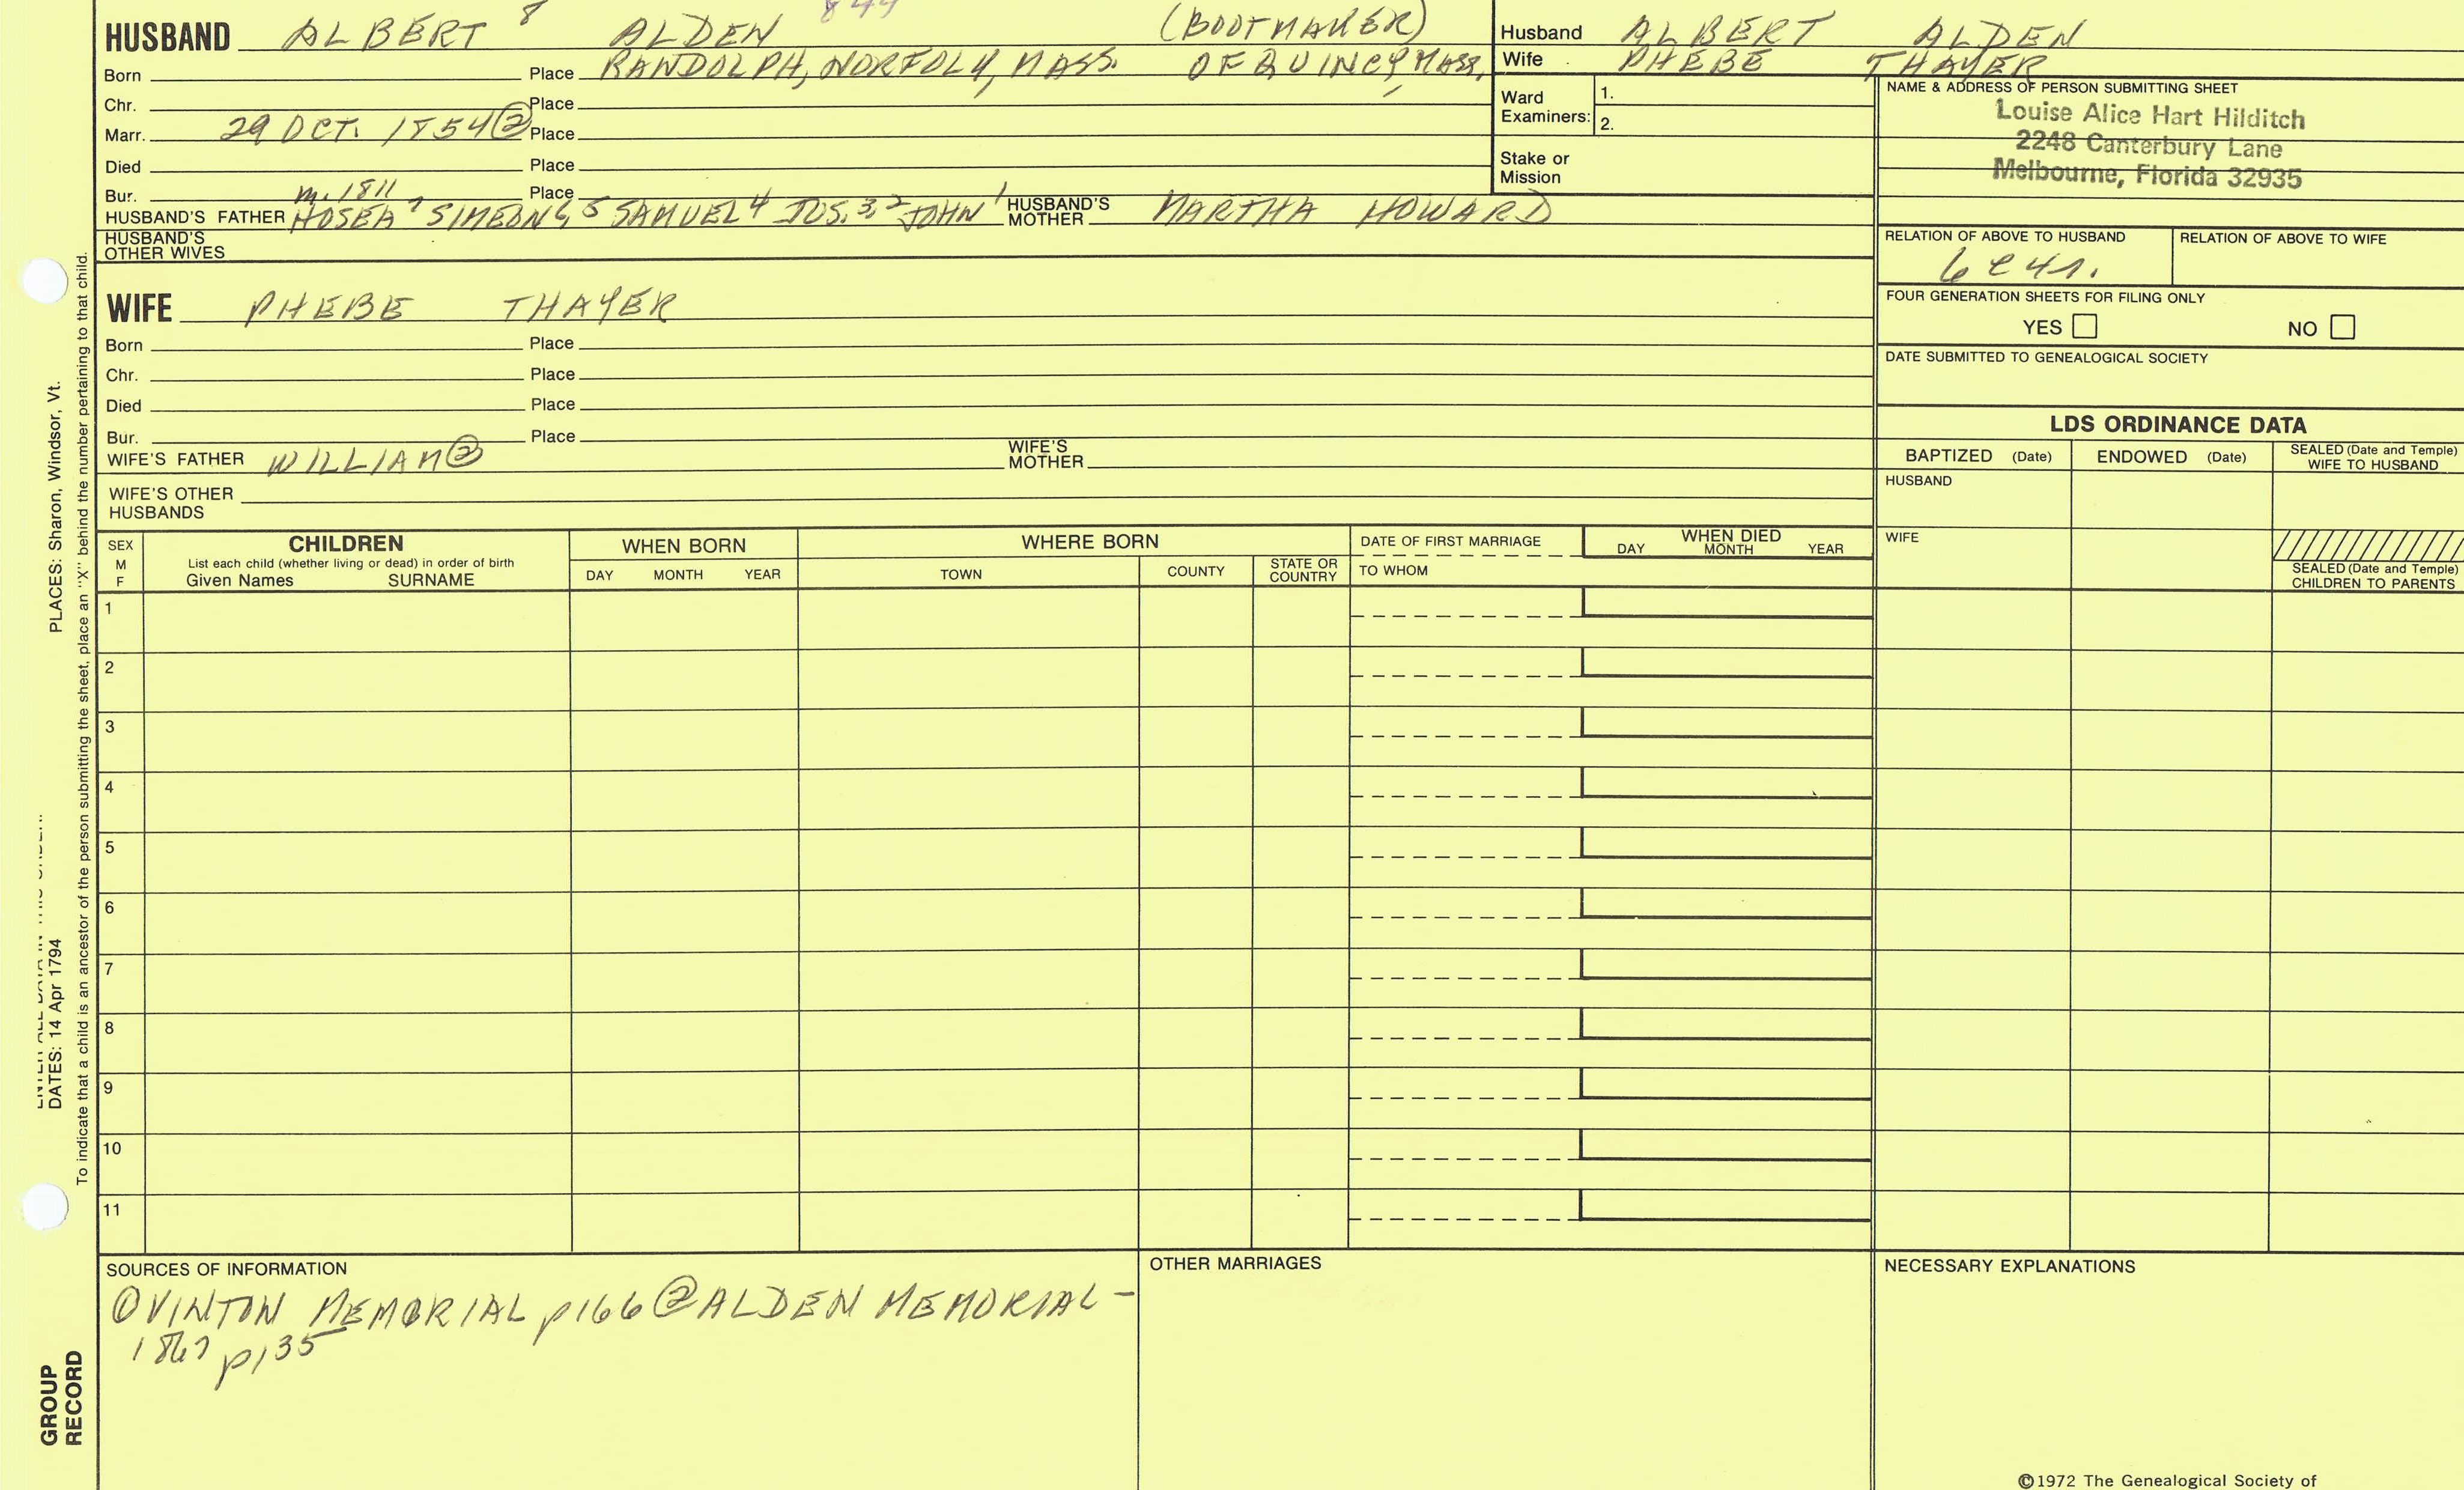 HUSBAND ALBERT 8 ALDEN 844 (BOOTMAKER)
Born Place RANDOLPH, NORFOLK, MASS. OF QUINCY, MASS.
Chr. Place
Marr. 29 OCT. 1854② Place
Died Place
Bur. m. 1811 Place
HUSBAND'S FATHER HOSEA 7 SIMEON 6, 5 SAMUEL 4 JOS. 3, 2 JOHN 1 HUSBAND'S MOTHER MARTHA HOWARD
HUSBAND'S OTHER WIVES
Husband ALBERT ALDEN
Wife PHEBE THAYER
Ward Examiners: 1.
2.
Stake or Mission
NAME & ADDRESS OF PERSON SUBMITTING SHEET
Louise Alice Hart Hilditch
2248 Canterbury Lane
Melbourne, Florida 32935
RELATION OF ABOVE TO HUSBAND RELATION OF ABOVE TO WIFE
FOUR GENERATION SHEETS FOR FILING ONLY
YES NO
DATE SUBMITTED TO GENEALOGICAL SOCIETY
WIFE PHEBE THAYER
Born Place
Chr. Place
Died Place
Bur. Place
WIFE'S FATHER WILLIAM② WIFE'S MOTHER
WIFE'S OTHER HUSBANDS
LDS ORDINANCE DATA
BAPTIZED (Date) ENDOWED (Date) SEALED (Date and Temple) WIFE TO HUSBAND
HUSBAND
WIFE
SEALED (Date and Temple) CHILDREN TO PARENTS
SEX M F
CHILDREN
List each child (whether living or dead) in order of birth
Given Names SURNAME
WHEN BORN
DAY MONTH YEAR
WHERE BORN
TOWN COUNTY STATE OR COUNTRY
DATE OF FIRST MARRIAGE
TO WHOM
WHEN DIED
DAY MONTH YEAR
1
2
3
4
5
6
7
8
9
10
11
SOURCES OF INFORMATION
① VINTON MEMORIAL p166 ② ALDEN MEMORIAL -
1867 p135
OTHER MARRIAGES
NECESSARY EXPLANATIONS
©1972 The Genealogical Society of
PLACES: Sharon, Windsor, Vt.
DATES: 14 Apr 1794
To indicate that a child is an ancestor of the person submitting the sheet, place an "X" behind the number pertaining to that child.
GROUP
RECORD